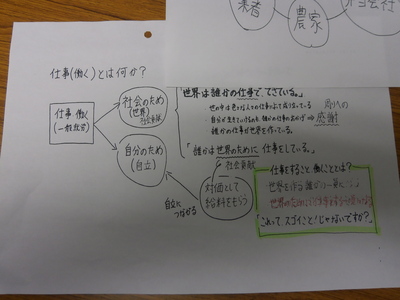 業者
農家
弁当会社
仕事(働く)とは何か?
仕事 働く
(一般就労)
社会のため
(世界)
社会貢献
自分のため
(自立)
「世界は誰かの仕事でできている。」
世の中は色々な人の仕事によって成り立っている
自分が生きていけるのも、誰かの仕事のおかげ
誰かの仕事が世界を作っている。
周りへの
感謝
「誰かは世界のために仕事をしている。」
社会貢献
対価として
給料をもらう
自立に
つながる
仕事をすること、働くこととは?
世界を作る誰かの一員に
世界のために
これって、スゴイこと!じゃないですか?